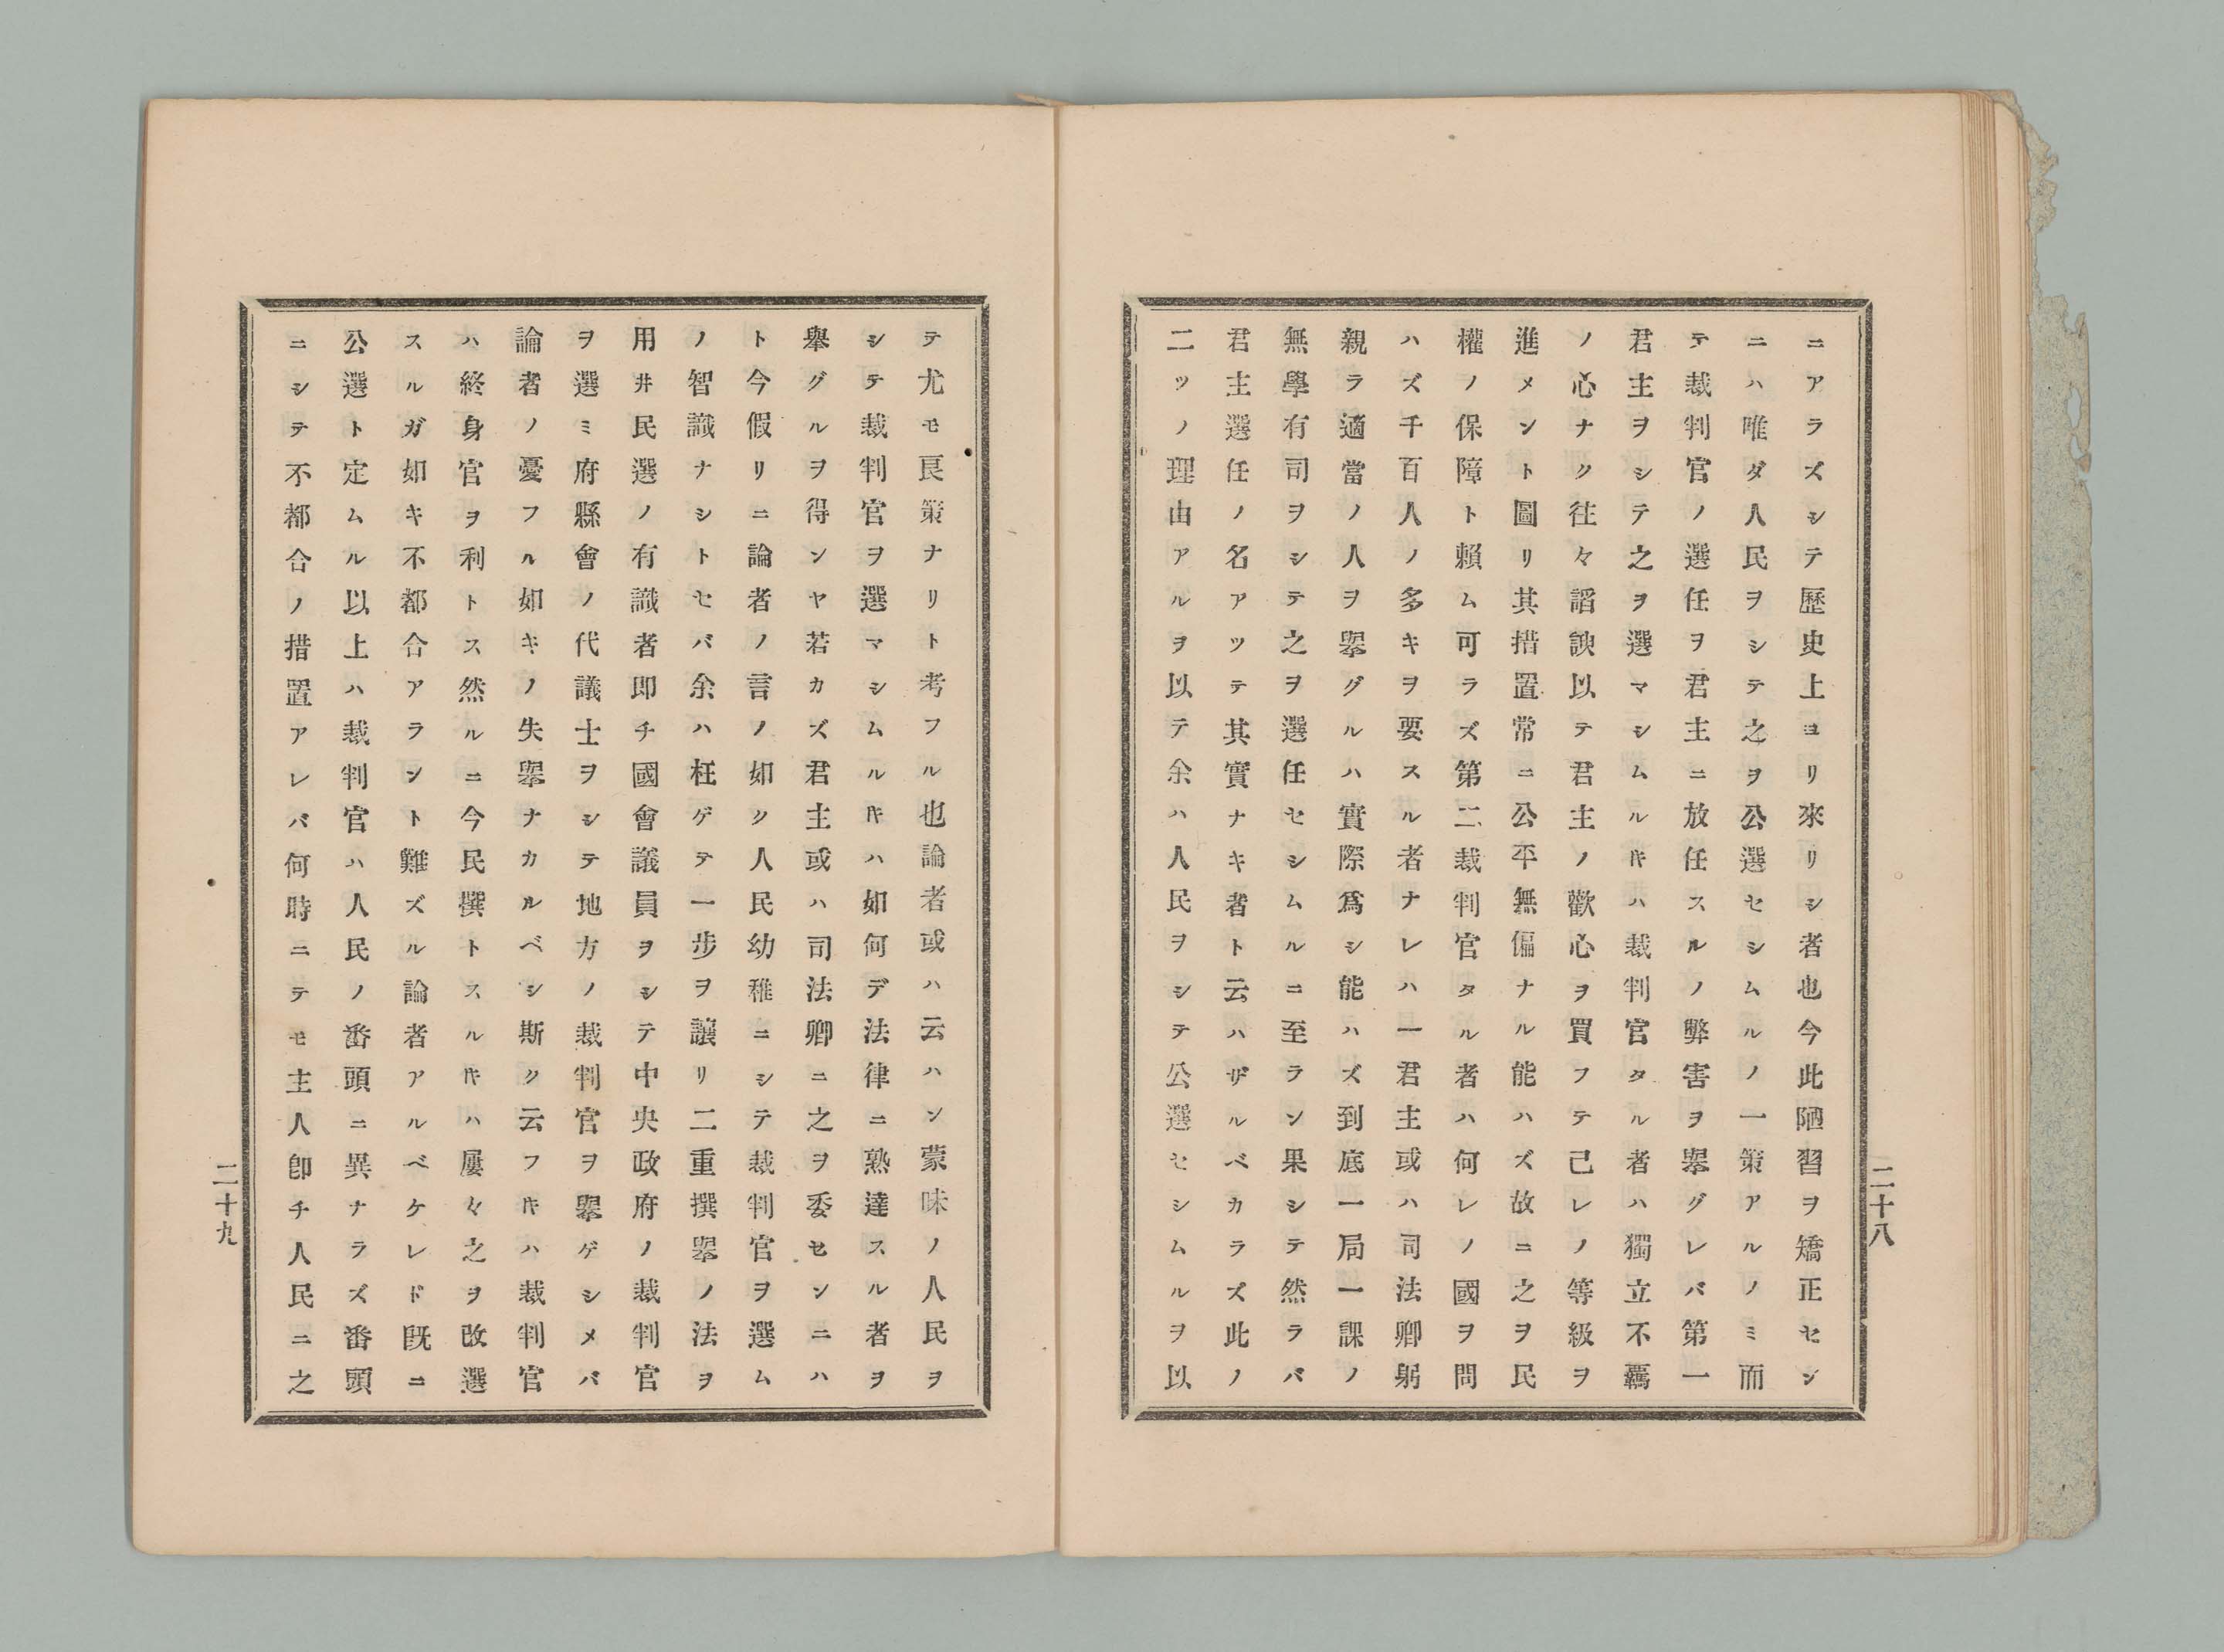 ニアラズシテ歷史上ヨリ來リシ者也今此陋習ヲ矯正セン
ニハ唯ダ人民ヲシテ之ヲ公選セシムルノ一策アルノミ而
テ裁判官ノ選任ヲ君主ニ放任スルノ弊害ヲ擧グレバ第一
君主ヲシテ之ヲ選マシムルキハ裁判官タル者ハ獨立不羈
ノ心ナク往々謟諛以テ君主ノ歡心ヲ買フテ己レノ等級ヲ
進メント圖リ其措置常ニ公平無偏ナル能ハズ故ニ之ヲ民
權ノ保障ト賴ム可ラズ第二裁判官タル者ハ何レノ國ヲ問
ハズ千百人ノ多キヲ要スル者ナレハ一君主或ハ司法卿躬
親ラ適當ノ人ヲ擧グルハ實際爲シ能ハズ到底一局一課ノ
無學有司ヲシテ之ヲ選任セシムルニ至ラン果シテ然ラバ
君主選任ノ名アツテ其實ナキ者ト云ハザルベカラズ此ノ
二ツノ理由アルヲ以テ余ハ人民ヲシテ公選セシムルヲ以
二十八
テ尤モ良策ナリト考フル也論者或ハ云ハン蒙昧ノ人民ヲ
シテ裁判官ヲ選マシムルキハ如何デ法律ニ熟達スル者ヲ
擧グルヲ得ンヤ若カズ君主或ハ司法卿ニ之ヲ委センニハ
ト今假リニ論者ノ言ノ如ク人民幼稚ニシテ裁判官ヲ選ム
ノ智識ナシトセバ余ハ枉ゲテ一步ヲ讓リ二重撰擧ノ法ヲ
用井民選ノ有識者即チ國會議員ヲシテ中央政府ノ裁判官
ヲ選ミ府縣會ノ代議士ヲシテ地方ノ裁判官ヲ擧ゲシメバ
論者ノ憂フル如キノ失擧ナカルベシ斯ク云フキハ裁判官
ハ終身官ヲ利トス然ルニ今民撰トスルキハ屢々之ヲ改選
スルガ如キ不都合アラント難ズル論者アルベケレド旣ニ
公選ト定ムル以上ハ裁判官ハ人民ノ番頭ニ異ナラズ番頭
ニシテ不都合ノ措置アレバ何時ニテモ主人卽チ人民ニ之
二十九